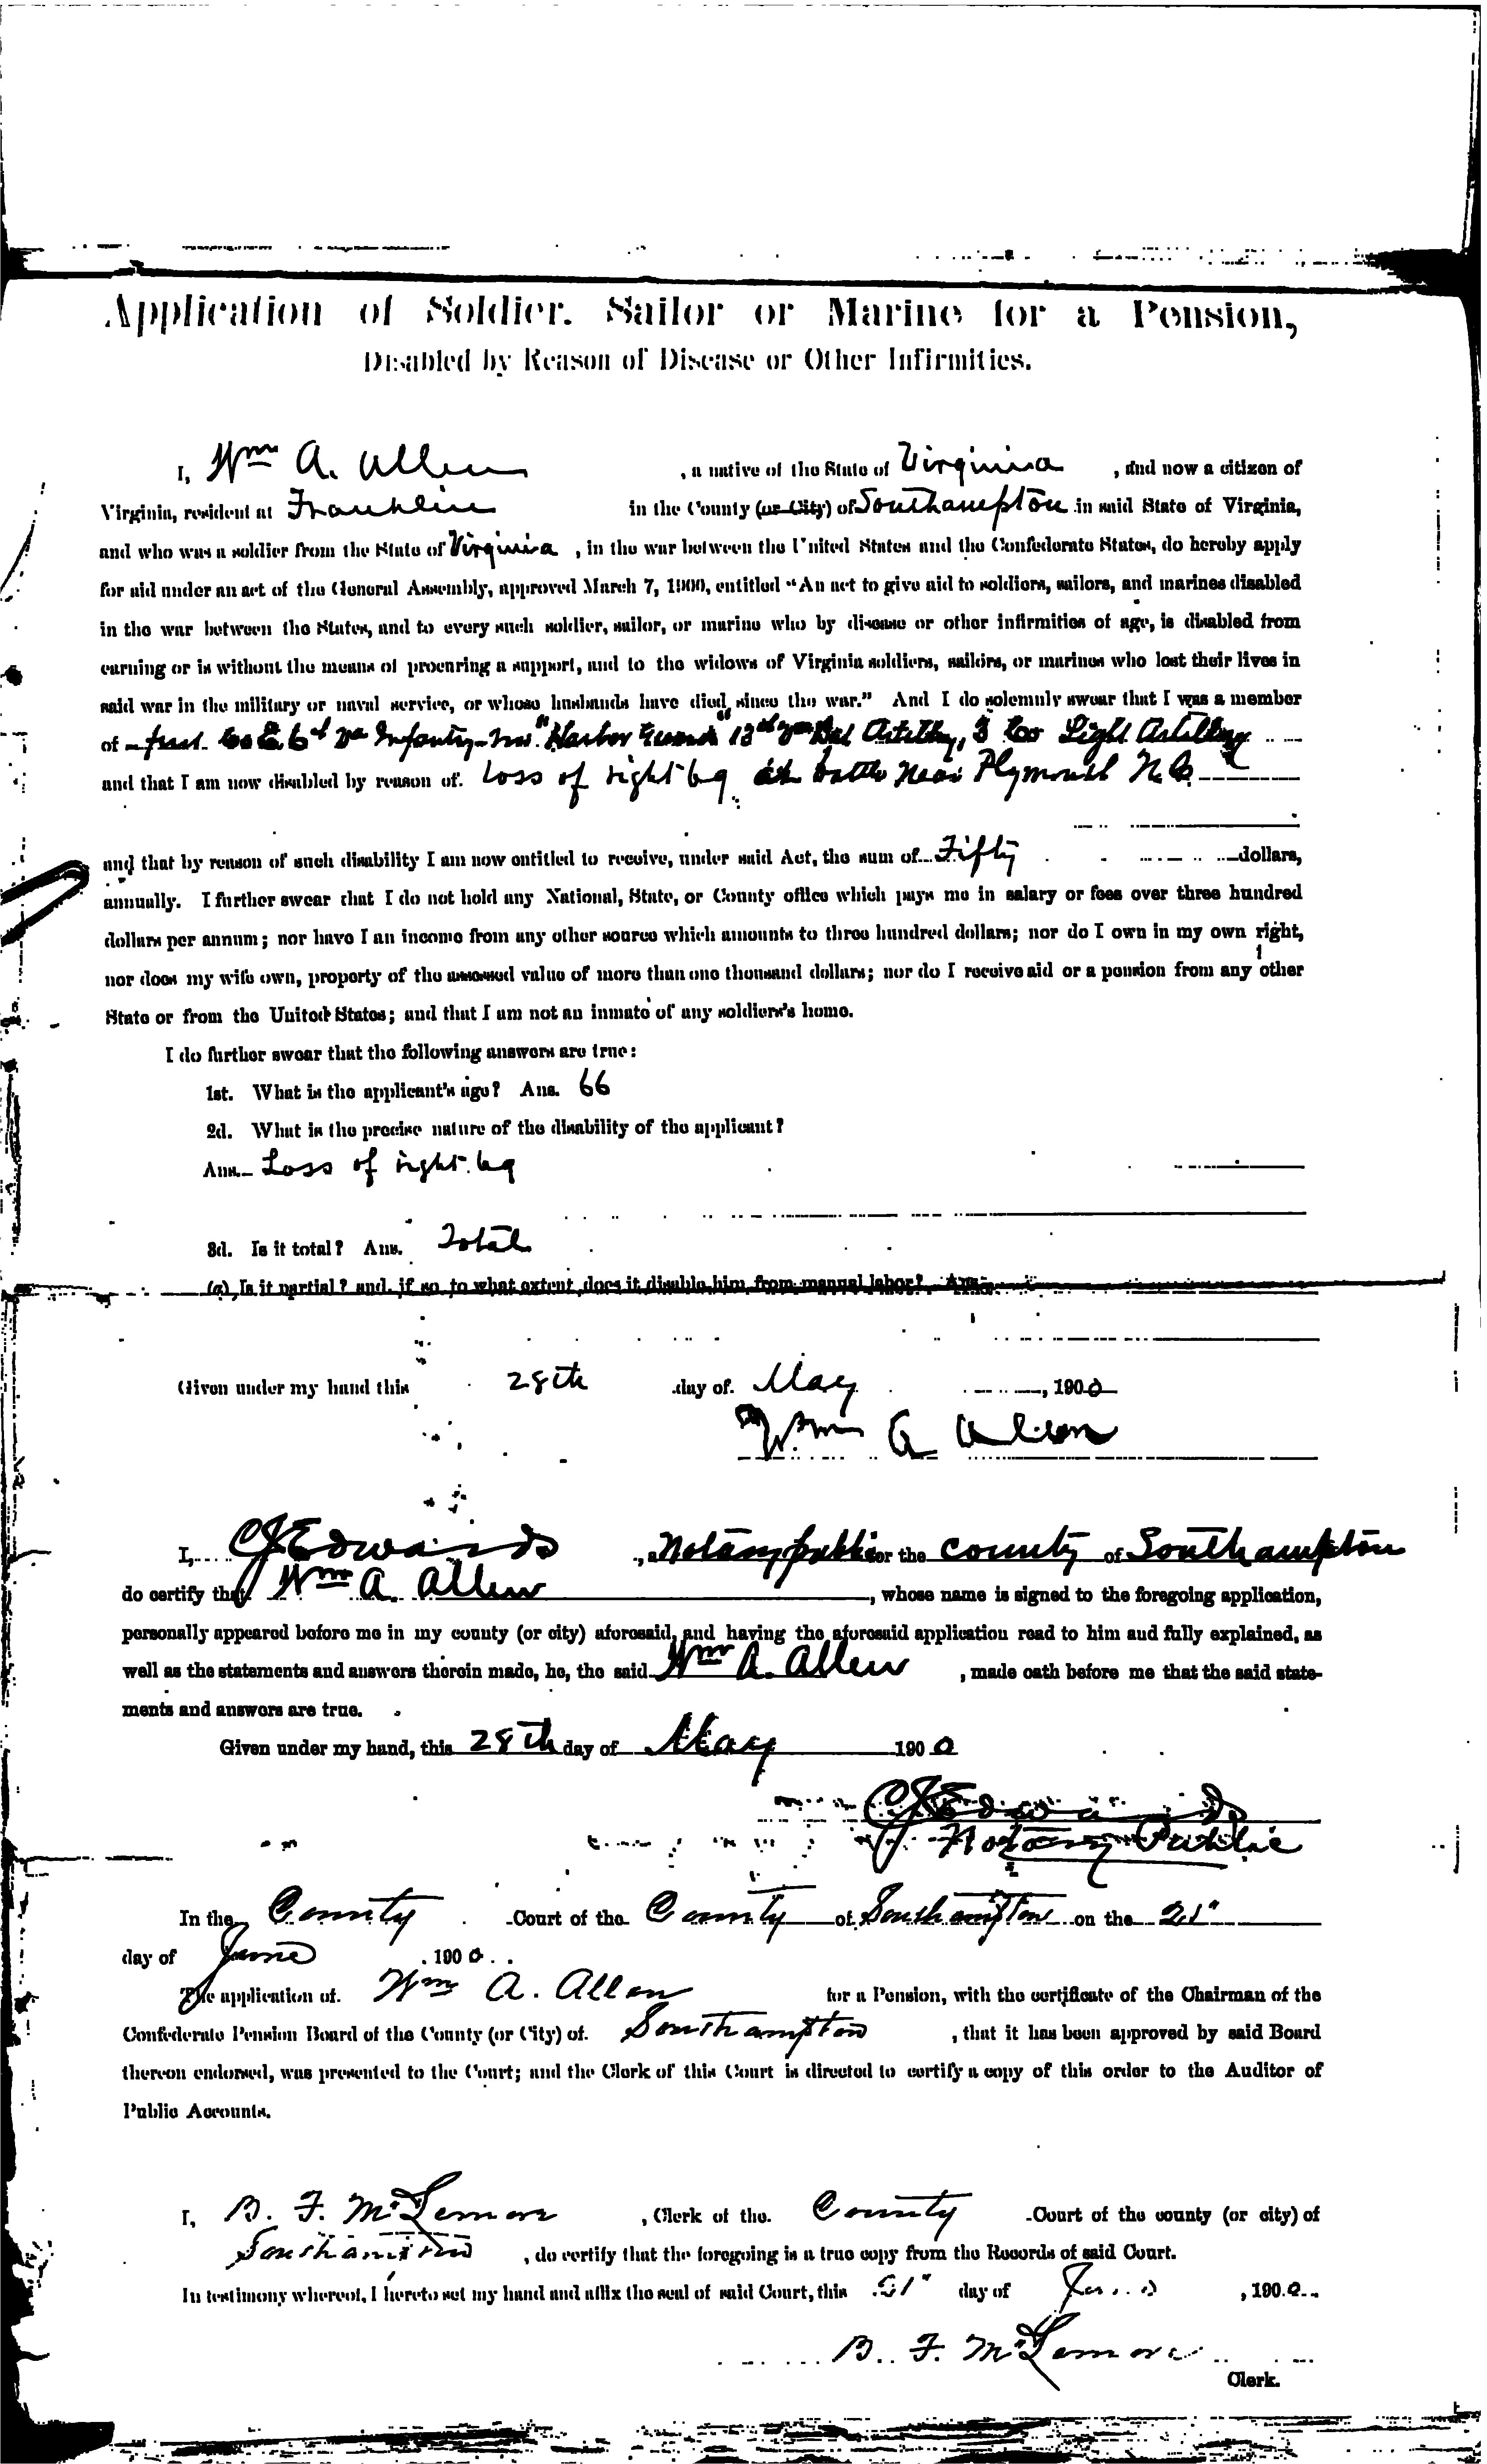 Application of Soldier, Sailor or Marine for a Pension,
Disabled by Reason of Disease or Other Infirmities.
I, Wm A. Allen, a native of the State of Virginia, and now a citizen of
Virginia, resident at Franklin in the County (or City) of Southampton in said State of Virginia,
and who was a soldier from the State of Virginia, in the war between the United States and the Confederate States, do hereby apply
for aid under an act of the General Assembly, approved March 7, 1900, entitled "An act to give aid to soldiers, sailors, and marines disabled
in the war between the States, and to every such soldier, sailor, or marine who by disease or other infirmities of age, is disabled from
earning or is without the means of procuring a support, and to the widows of Virginia soldiers, sailors, or marines who lost their lives in
said war in the military or naval service, or whose husbands have died since the war." And I do solemnly swear that I was a member
of first Co 6th Va Infantry "Harbor Guards" 13th Bat Artillery, Co Light Artillery
and that I am now disabled by reason of. Loss of right leg at battle near Plymouth N.C.
and that by reason of such disability I am now entitled to receive, under said Act, the sum of Fifty dollars,
annually. I further swear that I do not hold any National, State, or County office which pays me in salary or fees over three hundred
dollars per annum; nor have I an income from any other source which amounts to three hundred dollars; nor do I own in my own right,
nor does my wife own, property of the assessed value of more than one thousand dollars; nor do I receive aid or a pension from any other
State or from the United States; and that I am not an inmate of any soldiers's home.
I do further swear that the following answers are true:
1st. What is the applicant's age? Ans. 66
2d. What is the precise nature of the disability of the applicant?
Ans. Loss of right leg
3d. Is it total? Ans. Total
(a) Is it partial? and, if so, to what extent does it disable him from manual labor? Ans.
Given under my hand this 28th day of. May, 1900
Wm A Allen
I, CJ Edwards, a Notary public for the county of Southampton
do certify that Wm A. Allen, whose name is signed to the foregoing application,
personally appeared before me in my county (or city) aforesaid, and having the aforesaid application read to him and fully explained, as
well as the statements and answers therein made, he, the said Wm A. Allen, made oath before me that the said state-
ments and answers are true.
Given under my hand, this 28th day of May 1900
CJ Edwards
Notary Public
In the County Court of the County of Southampton on the 21"
day of June 1900
The application of. Wm A. Allen for a Pension, with the certificate of the Chairman of the
Confederate Pension Board of the County (or City) of. Southampton, that it has been approved by said Board
thereon endorsed, was presented to the Court; and the Clerk of this Court is directed to certify a copy of this order to the Auditor of
Public Accounts.
I, B. F. McLemore, Clerk of the. County Court of the county (or city) of
Southampton, do certify that the foregoing is a true copy from the Records of said Court.
In testimony whereof, I hereto set my hand and affix the seal of said Court, this 21" day of June, 1900
B. F. McLemore
Clerk.